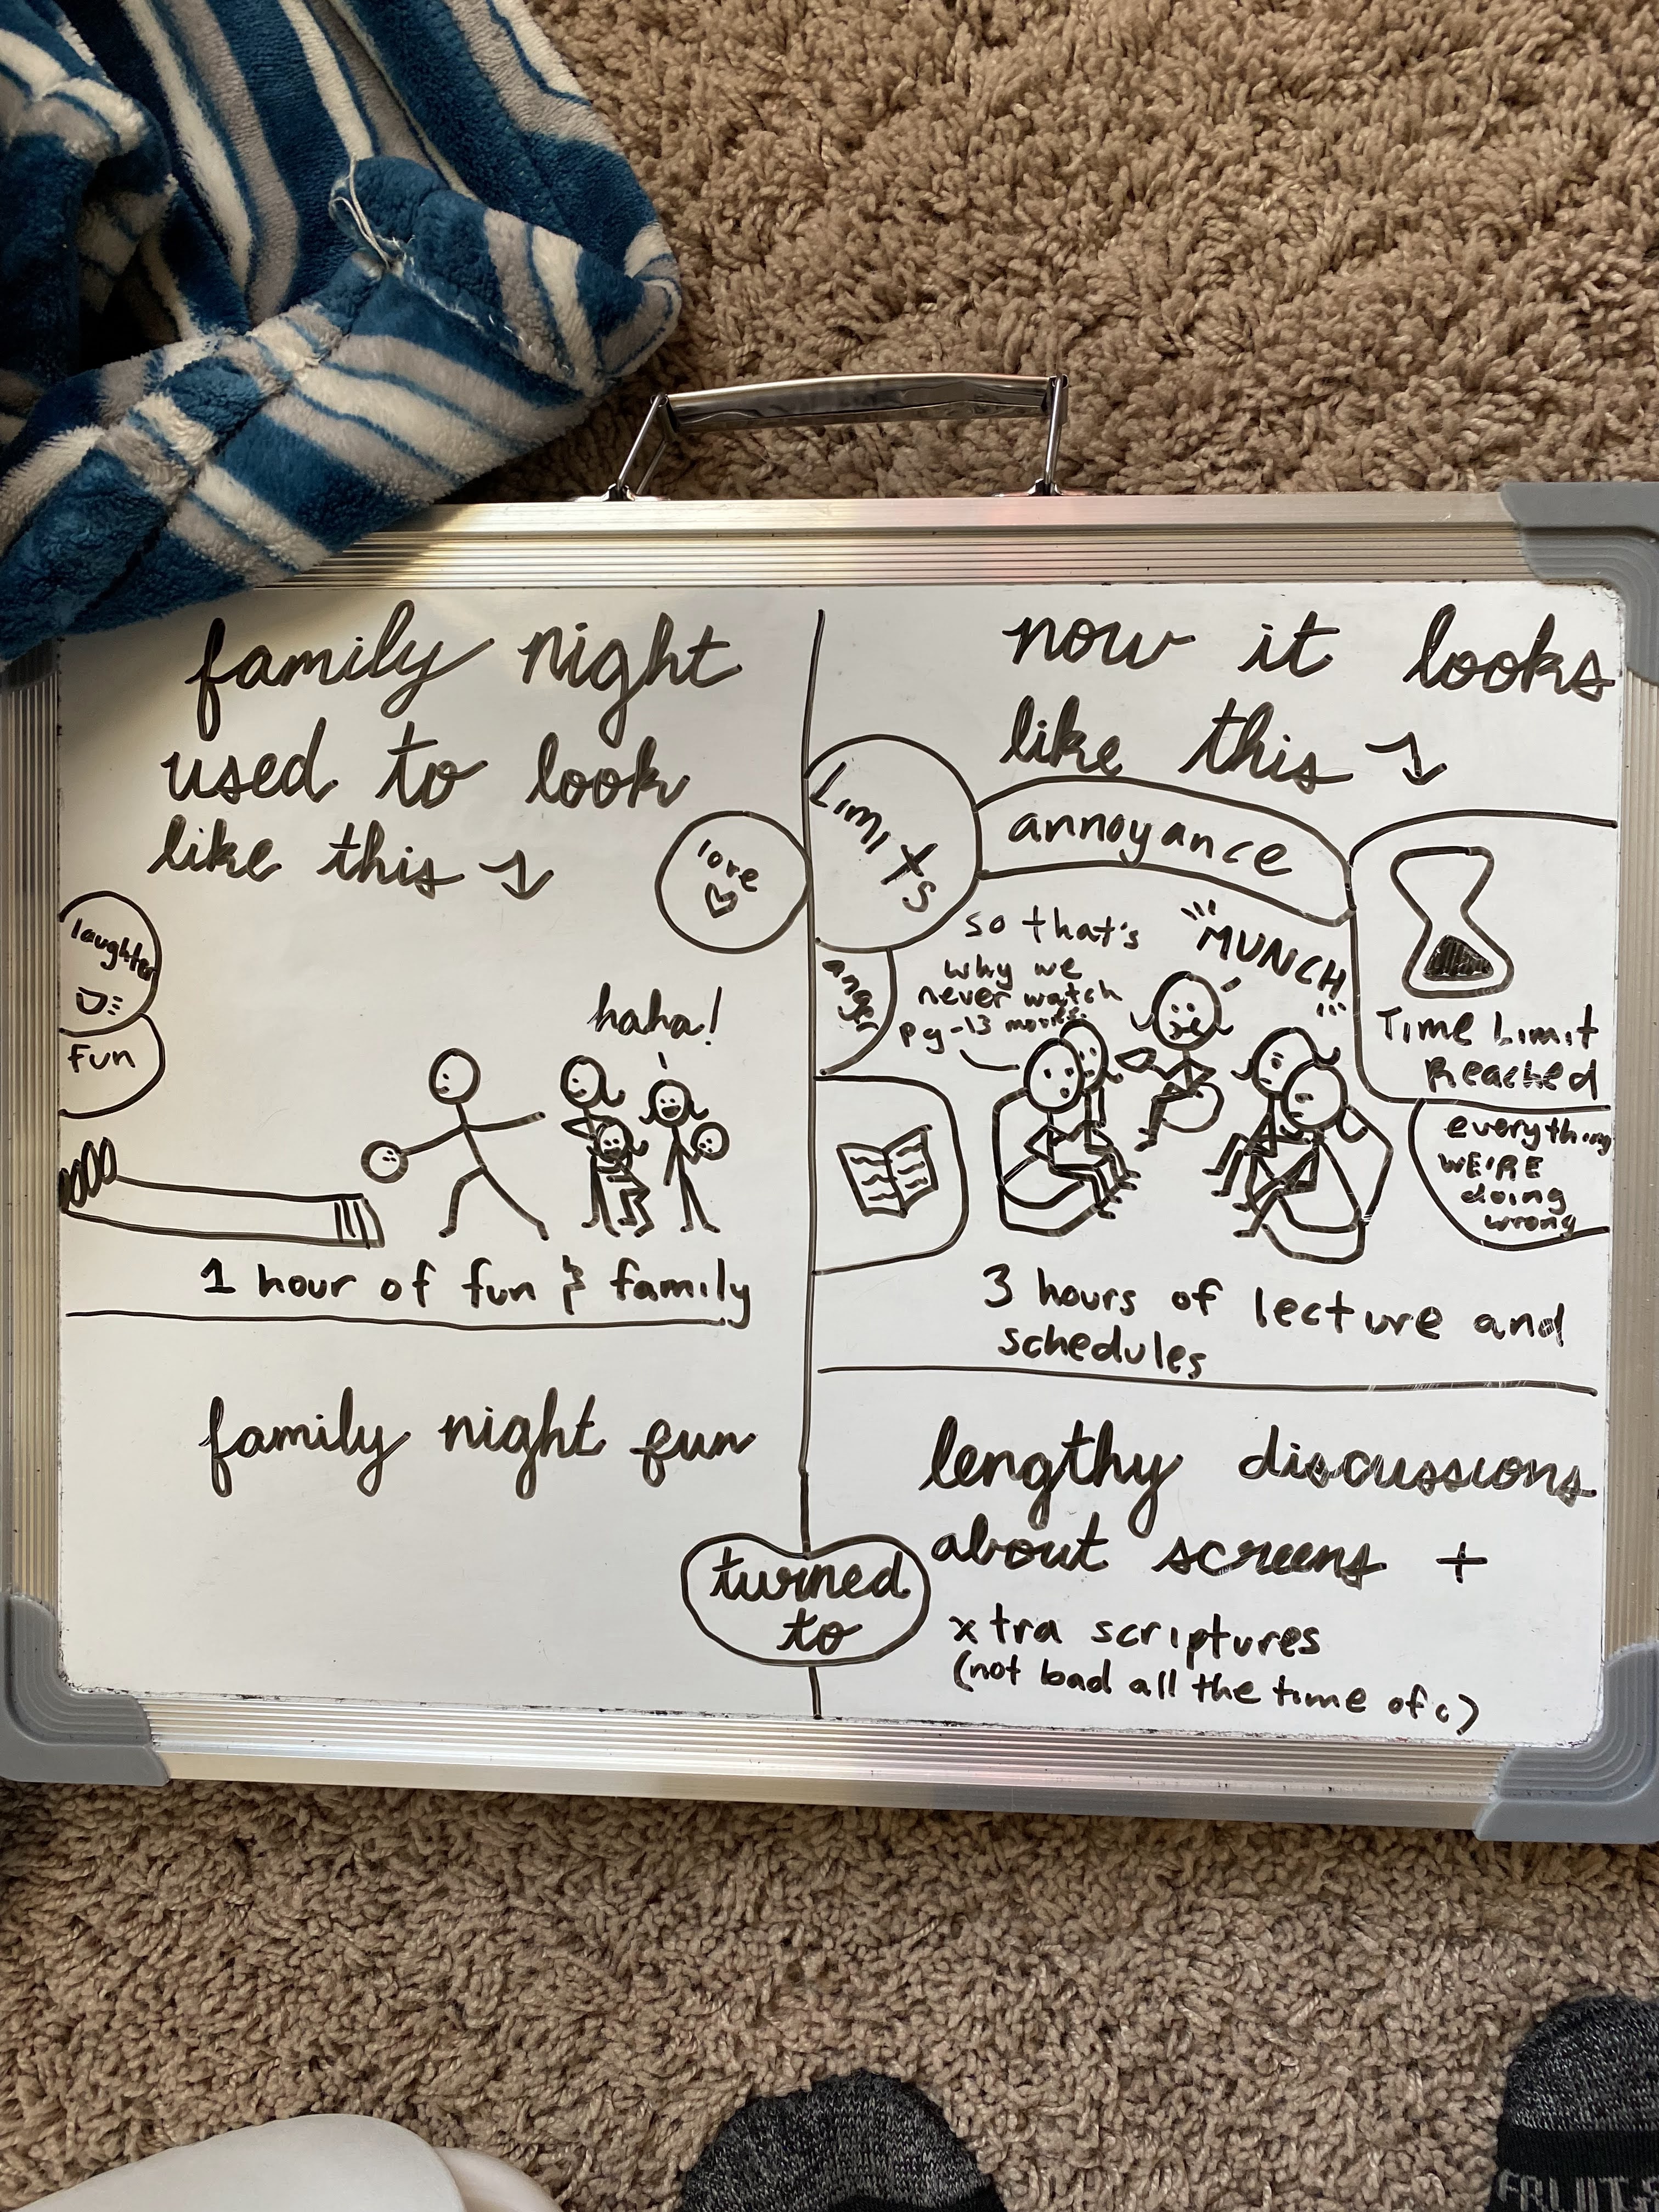 family night
used to look
like this
love
laughter
fun
haha!
1 hour of fun & family
family night fun
turned
to
now it looks
like this
Limits
annoyance
anger
so that's
why we
never watch
pg-13 movies.
MUNCH
Time Limit
Reached
everything
WE'RE
doing
wrong
3 hours of lecture and
schedules
lengthy discussions
about screens +
xtra scriptures
(not bad all the time ofc)